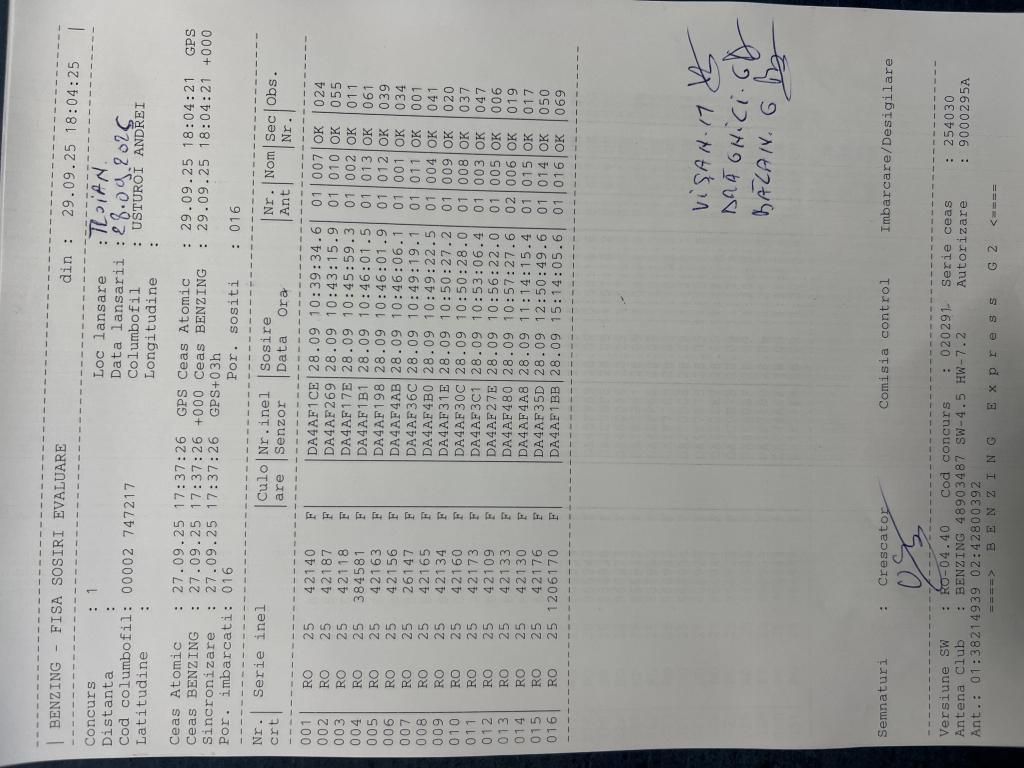 | BENZING - FISA SOSIRI EVALUARE din : 29.09.25 18:04:25 |
Concurs : 1 Loc lansare :
Distanta : Data lansarii : 28.09.2025
Cod columbofil: 00002 747217 Columbofil : USTUROI ANDREI
Latitudine : Longitudine :
Ceas Atomic : 27.09.25 17:37:26 GPS Ceas Atomic : 29.09.25 18:04:21 GPS
Ceas BENZING : 27.09.25 17:37:26 +000 Ceas BENZING : 29.09.25 18:04:21 +000
Sincronizare : 27.09.25 17:37:26 GPS+03h
Por. imbarcati: 016 Por. sositi : 016
Nr. | Serie inel |Culo|Nr.inel |Sosire Nr.| Nom|Sec|Obs.
crt| |are |Senzor |Data Ora Ant| |Nr.|
001 | RO 25 42140 F |DA4AF1CE|28.09 10:39:34.6 01|007|OK |024
002 | RO 25 42187 F |DA4AF269|28.09 10:43:15.9 01|010|OK |055
003 | RO 25 42118 F |DA4AF17E|28.09 10:45:59.3 01|002|OK |011
004 | RO 25 384581 F |DA4AF1B1|28.09 10:46:01.5 01|013|OK |061
005 | RO 25 42163 F |DA4AF198|28.09 10:46:01.9 01|012|OK |039
006 | RO 25 42156 F |DA4AF4AB|28.09 10:46:06.1 01|001|OK |034
007 | RO 25 26147 F |DA4AF36C|28.09 10:49:19.1 01|011|OK |001
008 | RO 25 42165 F |DA4AF4B0|28.09 10:49:22.5 01|004|OK |041
009 | RO 25 42134 F |DA4AF31E|28.09 10:50:27.2 01|009|OK |020
010 | RO 25 42160 F |DA4AF30C|28.09 10:50:28.0 01|008|OK |037
011 | RO 25 42173 F |DA4AF3C1|28.09 10:53:06.4 01|003|OK |047
012 | RO 25 42109 F |DA4AF27E|28.09 10:56:22.0 01|005|OK |006
013 | RO 25 42133 F |DA4AF480|28.09 10:57:27.6 02|006|OK |019
014 | RO 25 42130 F |DA4AF4A8|28.09 11:14:15.4 01|015|OK |017
015 | RO 25 42176 F |DA4AF35D|28.09 12:50:49.6 01|014|OK |050
016 | RO 25 1206170 F |DA4AF1BB|28.09 15:14:05.6 01|016|OK |069
VIȘAN.M
G
Semnaturi : Crescator Comisia control Imbarcare/Desigilare
Versiune SW : RO-04.40 Cod concurs : 020291 Serie ceas : 254030
Antena Club : BENZING 48903487 SW-4.5 HW-7.2 Autorizare : 9000295A
Ant.: 01:38214939 02:42800392
====> B E N Z I N G E x p r e s s G 2 <====